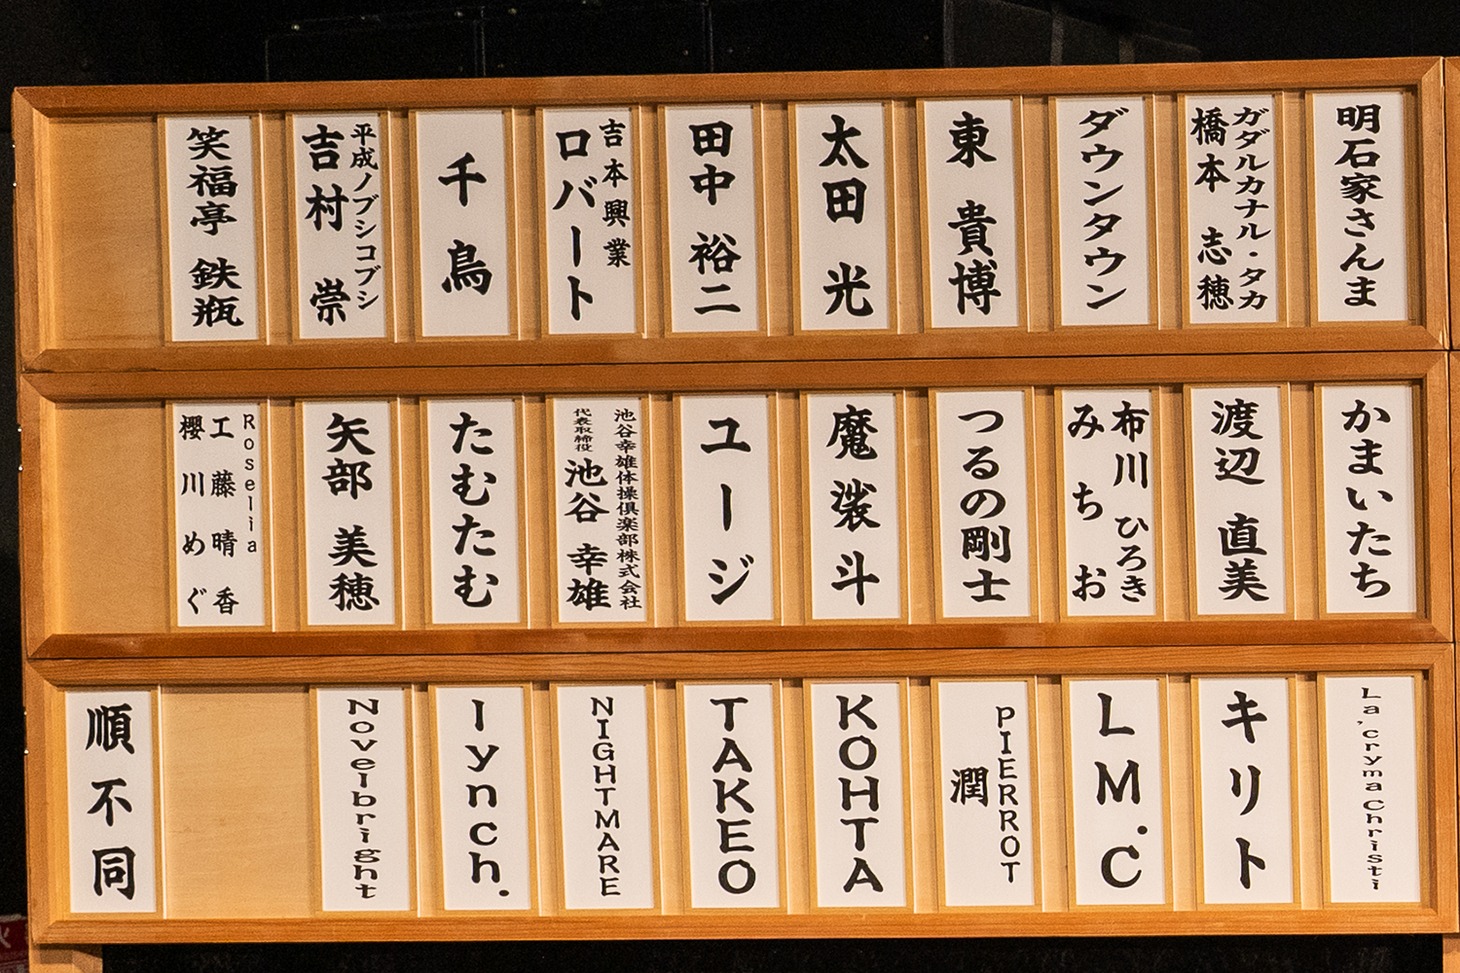 明石家さんま
ガダルカナル・タカ
橋本 志穂
ダウンタウン
東 貴博
太田 光
田中 裕二
吉本興業
ロバート
千鳥
平成ノブシコブシ
吉村 崇
笑福亭 鉄瓶
かまいたち
渡辺 直美
布川 ひろき
みちお
つるの剛士
魔裟斗
ユージ
池谷幸雄体操倶楽部株式会社
代表取締役 池谷 幸雄
たむたむ
矢部 美穂
Roselia
工藤晴香
櫻川めぐ
La'cryma Christi
キリト
LM.C
PIERROT
潤
KOHTA
TAKEO
NIGHTMARE
lynch.
Novelbright
順不同